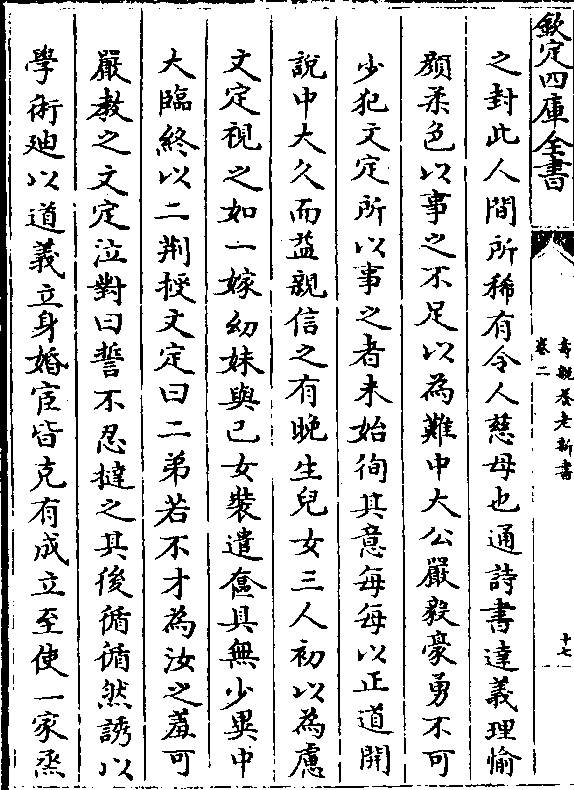 欽定四庫全書
壽親養老新書
卷二
十七
之封此人間所稀有令人慈母也通詩書達義理愉
顔柔色以事之不足以為難中大公嚴毅豪勇不可
少犯文定所以事之者未始徇其意每每以正道開
說中大久而益親信之有晚生兒女三人初以為慮
文定視之如一嫁幼妹與己女裝遣奩具無少異中
大臨終以二荆授文定曰二弟若不才為汝之羞可
嚴教之文定泣對曰誓不忍撻之其後循循然誘以
學術廸以道義立身婚宦皆克有成立至使一家烝